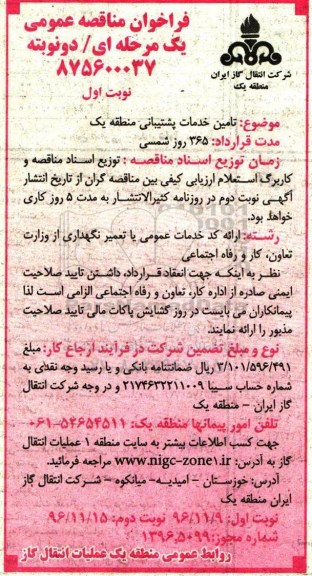 فراخوان مناقصه عمومی
یک مرحله ای/ دونوبته
۸۷۵۶۰۰۰۳۷
نوبت اول
شرکت انتقال گاز ایران
منطقه یک
موضوع: تامین خدمات پشتیبانی منطقه یک
مدت قرارداد: ۳۶۵ روز شمسی
زمان توزیع اسناد مناقصه : توزیع اسناد مناقصه و
کاربرگ استعلام ارزیابی کیفی بین مناقصه گران از تاریخ انتشار
آگهی نوبت دوم در روزنامه کثیرالانتشار به مدت ۵ روز کاری
خواهد بود.
رشته: ارائه کد خدمات عمومی یا تعمیر نگهداری از وزارت
تعاون، کار و رفاه اجتماعی
نظر به اینکه جهت انعقاد قرارداد، داشتن تایید صلاحیت
ایمنی صادره از اداره کار، تعاون و رفاه اجتماعی الزامی است لذا
پیمانکاران می بایست در روز گشایش پاکات مالی تایید صلاحیت
مذبور را ارائه نمایند.
نوع و مبلغ تضمین شرکت در فرایند ارجاع کار: مبلغ
۳/۱۰۱/۵۹۶/۴۹۱ ریال ضمانتنامه بانکی و یا رسید وجه نقدی به
شماره حساب سیبا ۲۱۷۴۶۳۲۲۱۱۰۰۹ و در وجه شرکت انتقال
گاز ایران – منطقه یک
تلفن امور پیمانها منطقه یک: ۵۲۶۵۴۵۱۱-۰۶۱
جهت کسب اطلاعات بیشتر به سایت منطقه ۱ عملیات انتقال
گاز به آدرس: www.nigc-zone1.ir مراجعه فرمائید.
آدرس: خوزستان – امیدیه– میانکوه – شرکت انتقال گاز
ایران منطقه یک
نوبت اول: ۹۶/۱۱/۹ نوبت دوم: ۹۶/۱۱/۱۵
شماره مجوز: ۱۳۹۶.۵۰۹۹
روابط عمومی منطقه یک عملیات انتقال گاز